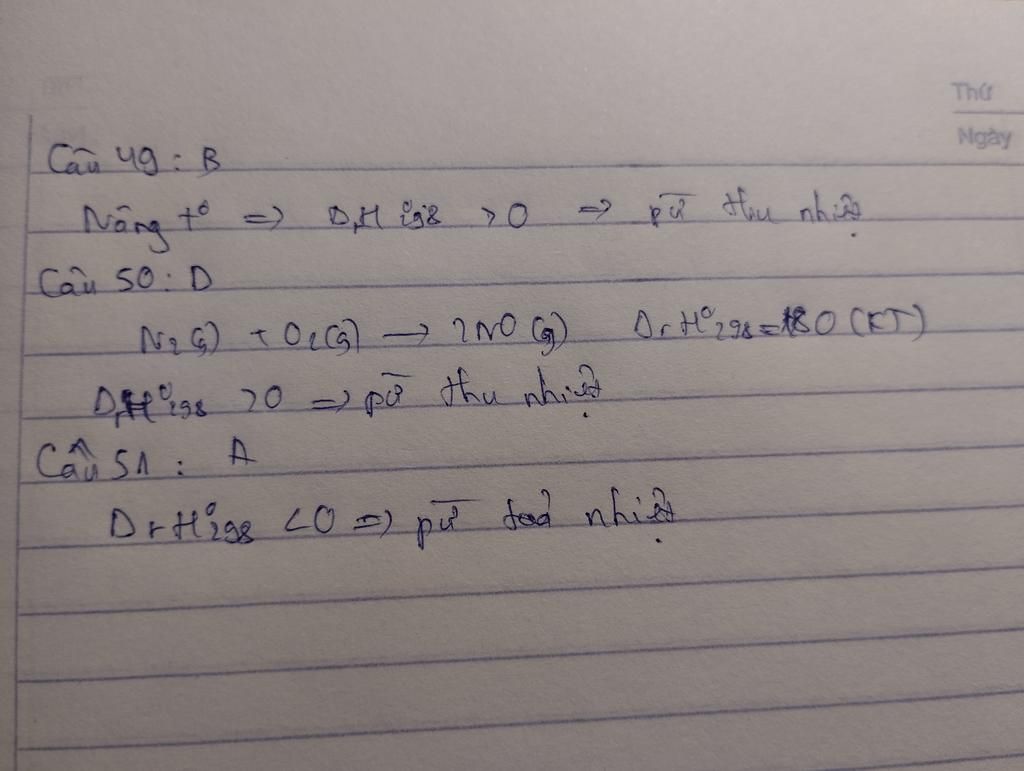 Thứ
Ngày
Câu 49 : B
Nâng t° => DrH°298 >0 => pứ thu nhiệt
Câu 50 : D
N2(g) + O2(g) → 2NO (g) DrH°298 = 180 (KJ)
DrH°298 >0 => pứ thu nhiệt
Câu 51 : A
DrH°298 <0 => pứ toả nhiệt